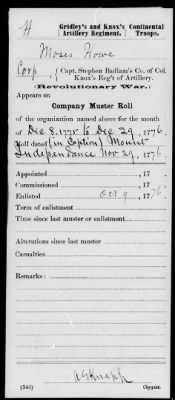 H
Gridley's and Knox's Continental
Artillery Regiment. Troops.
Moses Howe
Corp, Capt. Stephen Badlam's Co. of Col.
Knox's Reg't of Artillery.
(Revolutionary War:)
Appears on
Company Muster Roll
of the organization named above for the month
of Dec 8, 1775 to Dec 29, 1776.
Roll dated (in Caption) Mount
Independance Nov 29, 1776.
Appointed , 17 .
Commissioned , 17 .
Enlisted Oct 9, 1776.
Term of enlistment
Time since last muster or enlistment
Alterations since last muster
Casualties
Remarks:
Knapp
(543) Copyist.